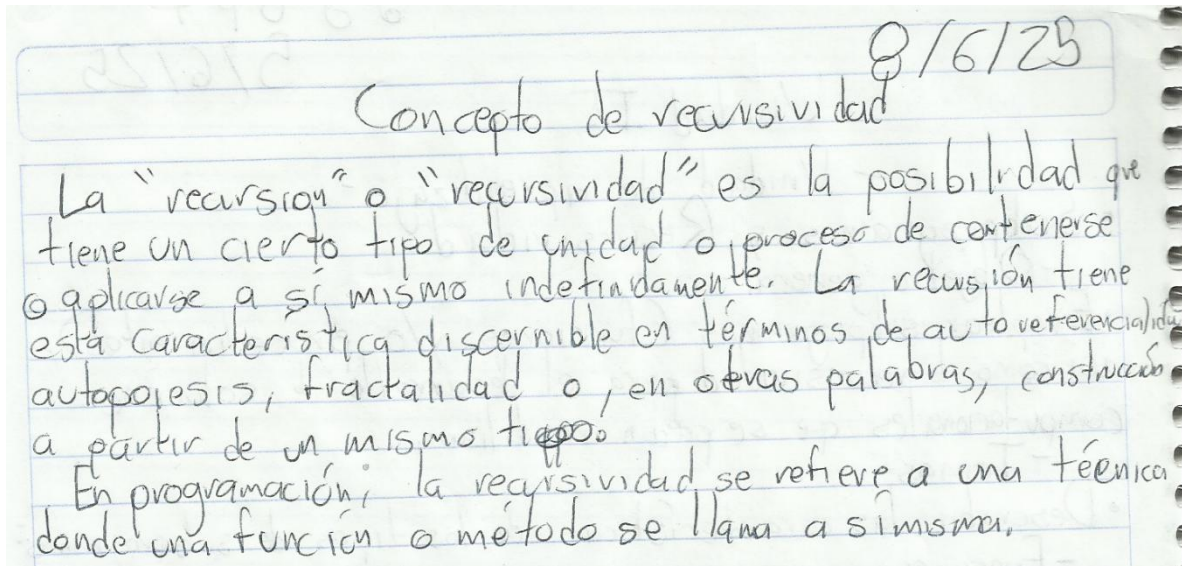 8/6/25
Concepto de recursividad
La "recursion" o "recursividad" es la posibilidad que
tiene un cierto tipo de unidad o proceso de contenerse
o aplicarse a sí mismo indefindamente. La recusión tiene
esta característica discernible en términos de autoreferencialida
autopoiesis, fractalidad o, en otras palabras, construcción
a partir de un mismo tipo.
En programación, la recursividad se refiere a una técnica
donde una función o método se llama a sí misma.